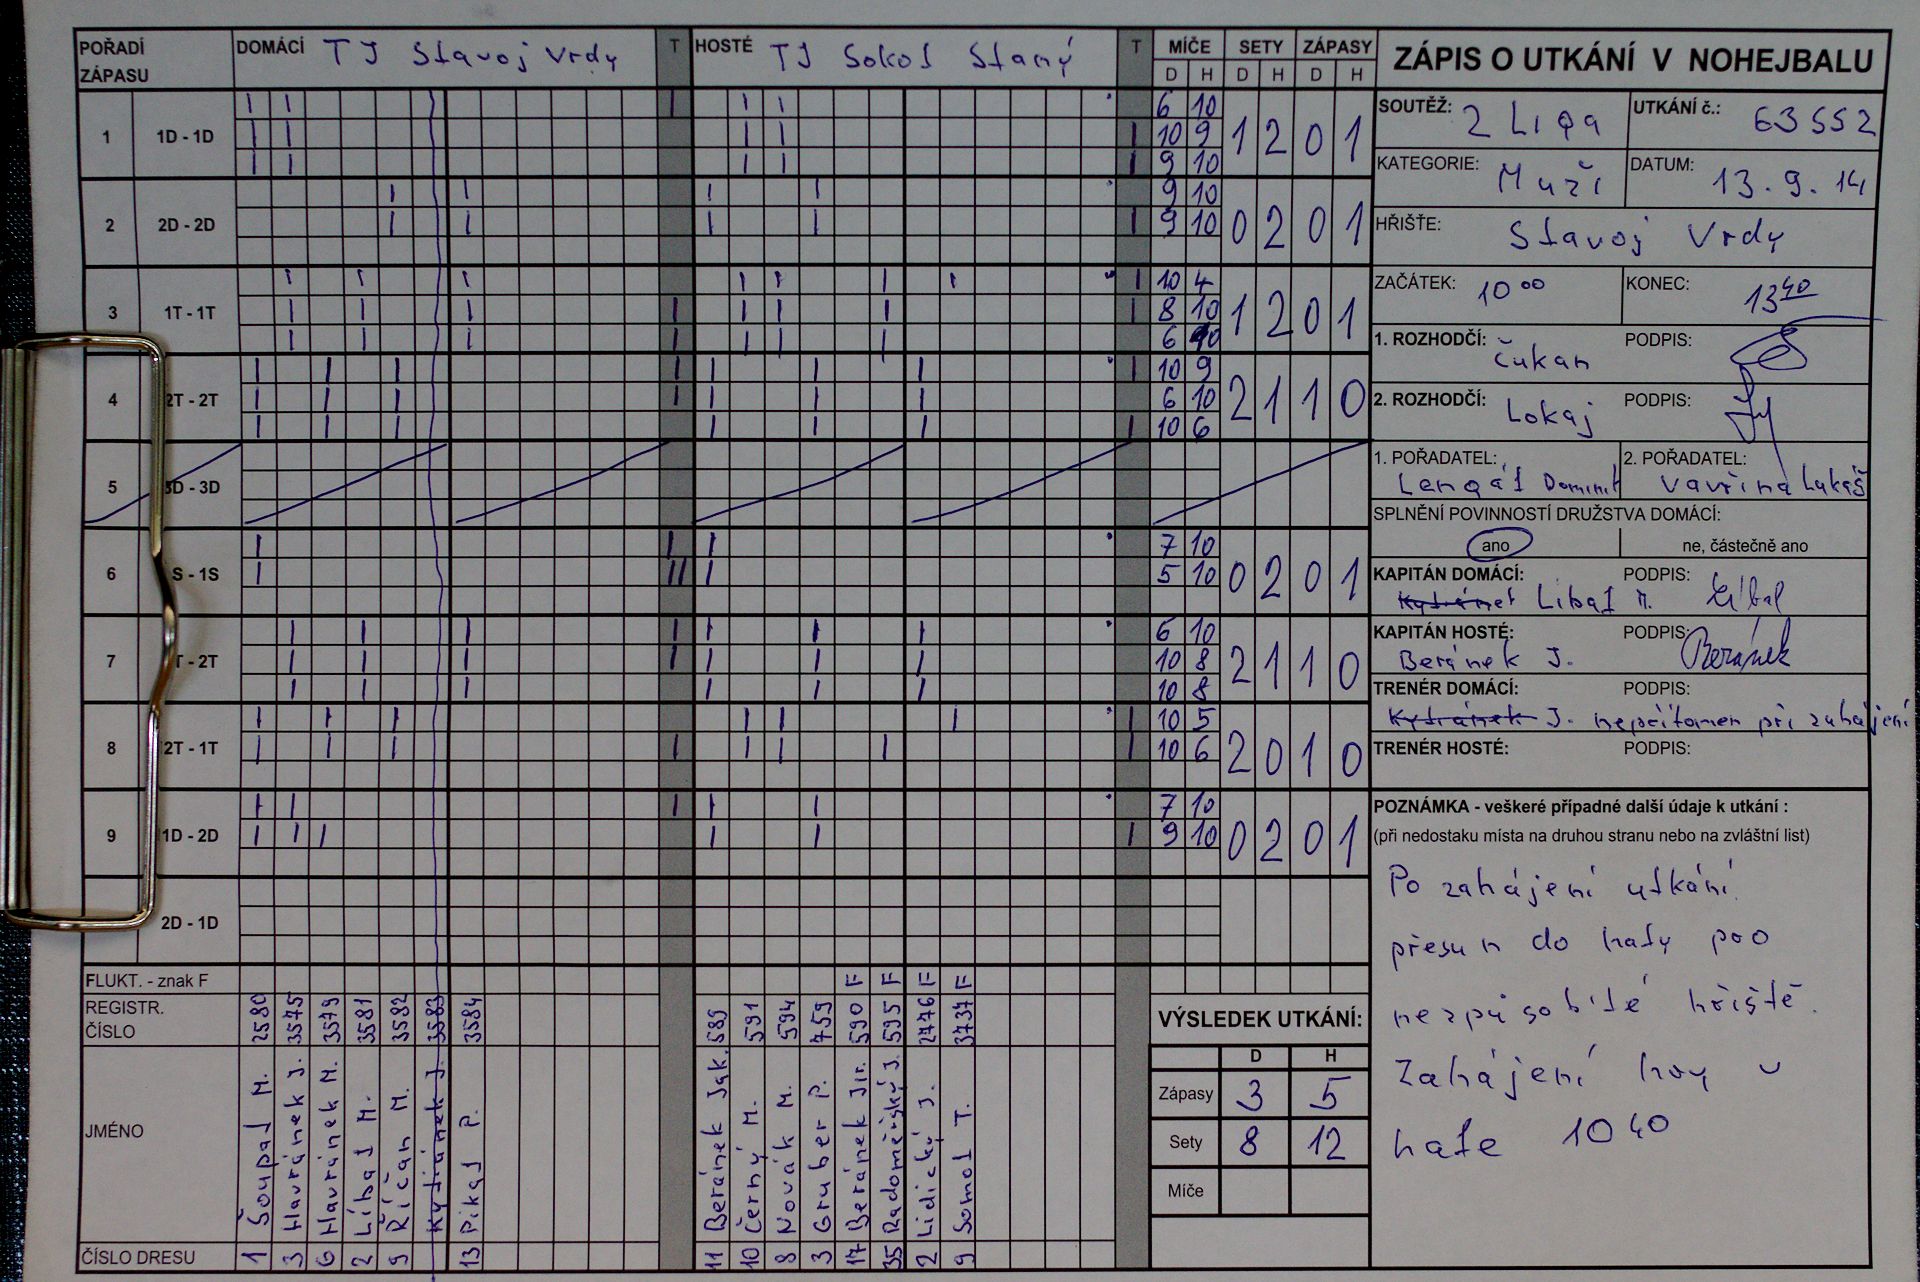 POŘADÍ ZÁPASU DOMÁCÍ TJ Stavoj Vrdy T HOSTÉ TJ Sokol Slaný T MÍČE SETY ZÁPASY
D H D H D H
1 1D - 1D 6 10
10 9 1 2 0 1
9 10
2 2D - 2D 9 10
9 10 0 2 0 1
3 1T - 1T 10 4
8 10 1 2 0 1
6 10
4 2T - 2T 10 9
6 10 2 1 1 0
10 6
5 3D - 3D
6 S - 1S 7 10
5 10 0 2 0 1
7 T - 2T 6 10
10 8 2 1 1 0
10 8
8 2T - 1T 10 5
10 6 2 0 1 0
9 1D - 2D 7 10
9 10 0 2 0 1
2D - 1D
FLUKT. - znak F F F F F
REGISTR. ČÍSLO 2580 3575 3579 3581 3582 3583 3584 589 591 594 759 590 595 2776 3737
JMÉNO Šoupal M. Havránek J. Havránek M. Líbal M. Říčan M. Kytránek J. Pikal P. Beránek Jak. Černý M. Novák M. Gruber P. Beránek Jir. Radoměřský J. Lidický J. Somol T.
ČÍSLO DRESU 1 3 6 2 9 13 11 10 8 3 17 35 2 9
ZÁPIS O UTKÁNÍ V NOHEJBALU
SOUTĚŽ: 2 Liga UTKÁNÍ č.: 63552
KATEGORIE: Muži DATUM: 13.9.14
HŘIŠTE: Stavoj Vrdy
ZAČÁTEK: 10 00 KONEC: 13 40
1. ROZHODČÍ: Čukan PODPIS:
2. ROZHODČÍ: Lokaj PODPIS:
1. POŘADATEL: Lengál Dominik 2. POŘADATEL: Vavřina Lukáš
SPLNĚNÍ POVINNOSTÍ DRUŽSTVA DOMÁCÍ:
ano ne, částečně ano
KAPITÁN DOMÁCÍ: PODPIS:
Líbal M. Líbal
KAPITÁN HOSTÉ: PODPIS:
Beránek J. Beránek
TRENÉR DOMÁCÍ: PODPIS:
Kytránek J. nepřítomen při zahájení
TRENÉR HOSTÉ: PODPIS:
POZNÁMKA - veškeré případné další údaje k utkání :
(při nedostaku místa na druhou stranu nebo na zvláštní list)
Po zahájení utkání
přesun do haly pro
nezpůsobilé hřiště.
Zahájení hry v
hale 10 40
VÝSLEDEK UTKÁNÍ:
D H
Zápasy 3 5
Sety 8 12
Míče